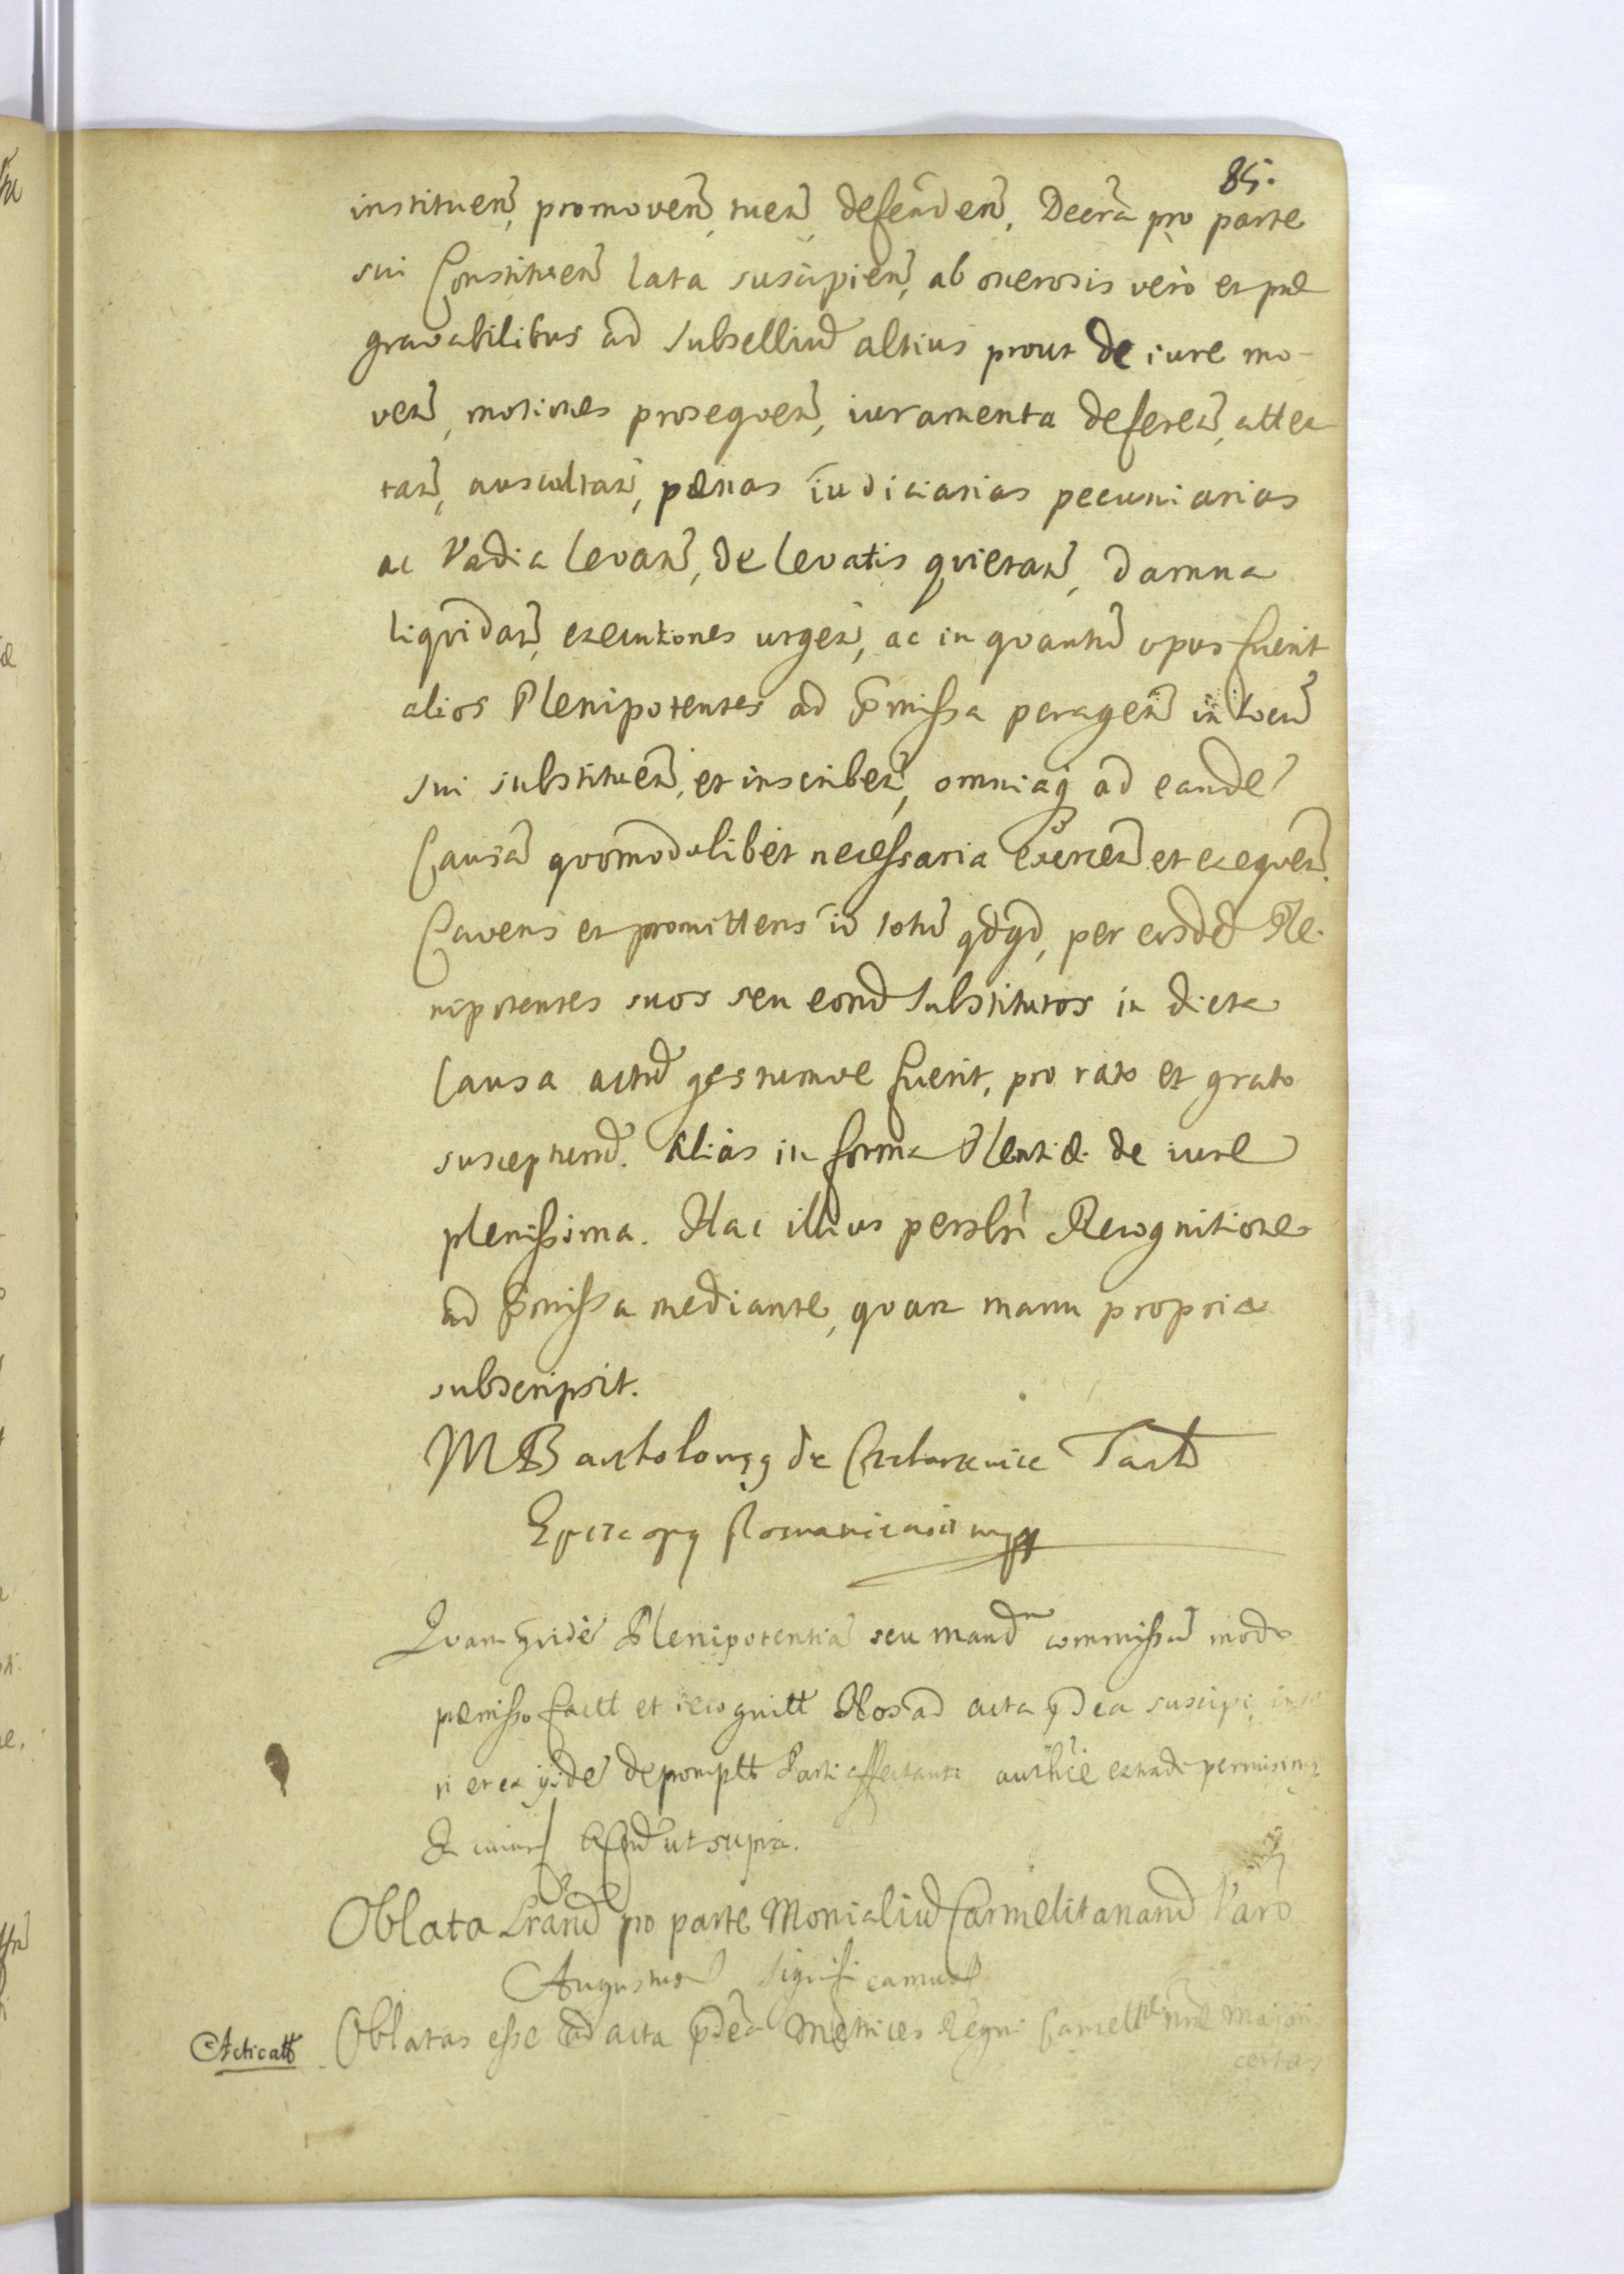 85.
instituen̄, promoven̄, tuen̄ defenden̄, Decrā pro parte
sui Constituen̄ lata suscipien̄, ab onerosis verò et præ
gravabilibus ad subselliu̅ altius prout de iure mo-
ven̄, motiones prosequen̄, iuramenta deferen̄, atten
tan̄, auscultan̄, pænas iudiciarias pecuniarias
ac Vadia levan̄, de levatis quietan̄, damna
liquidan̄, executiones urgen̄, ac in quantū opus fuerit
alios Plenipotentes ad p̄missa peragen̄ in locū
sui substituen̄, et inscriben̄, omniaq̨ ad eandē
Causā quomodolibet necessaria exercen̄ et exequen̄.
Cavens et promittens id totū qdqd, per eosdē Ple-
nipotentes suos seu eorū substitutos in dicta
Causa actū gestumve fuerit, pro rato et grato
suscepturū. Aliàs in forma Plentiæ de iure
plenissima. Hac illius persl̄ri Recognitione
ad p̄missa mediante, quam manu propria
subscripsit.
M Bartholom̨9 de Tarło
Episcop9 mpp
Quam quidē Plenipotentiā seu mand̄ commissū modo
præmisso factt et recognitt Nos ad acta p̄dca suscipi, inse
ri et ex ijsdē depromptt Parti affectanti authcē extradi permisim9
In cuius ut supra.
Oblata Lrarū pro parte Monialiū Carmelitanarū Varō
Augustus Significamus
Acticatt Oblatas esse ad acta p̄dcā Metrices Regni Cancellriæ nræ Majoris
certas